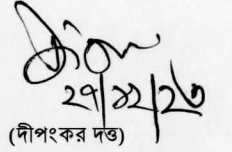 ২৭|১২|২৩
(দীপংকর দত্ত)